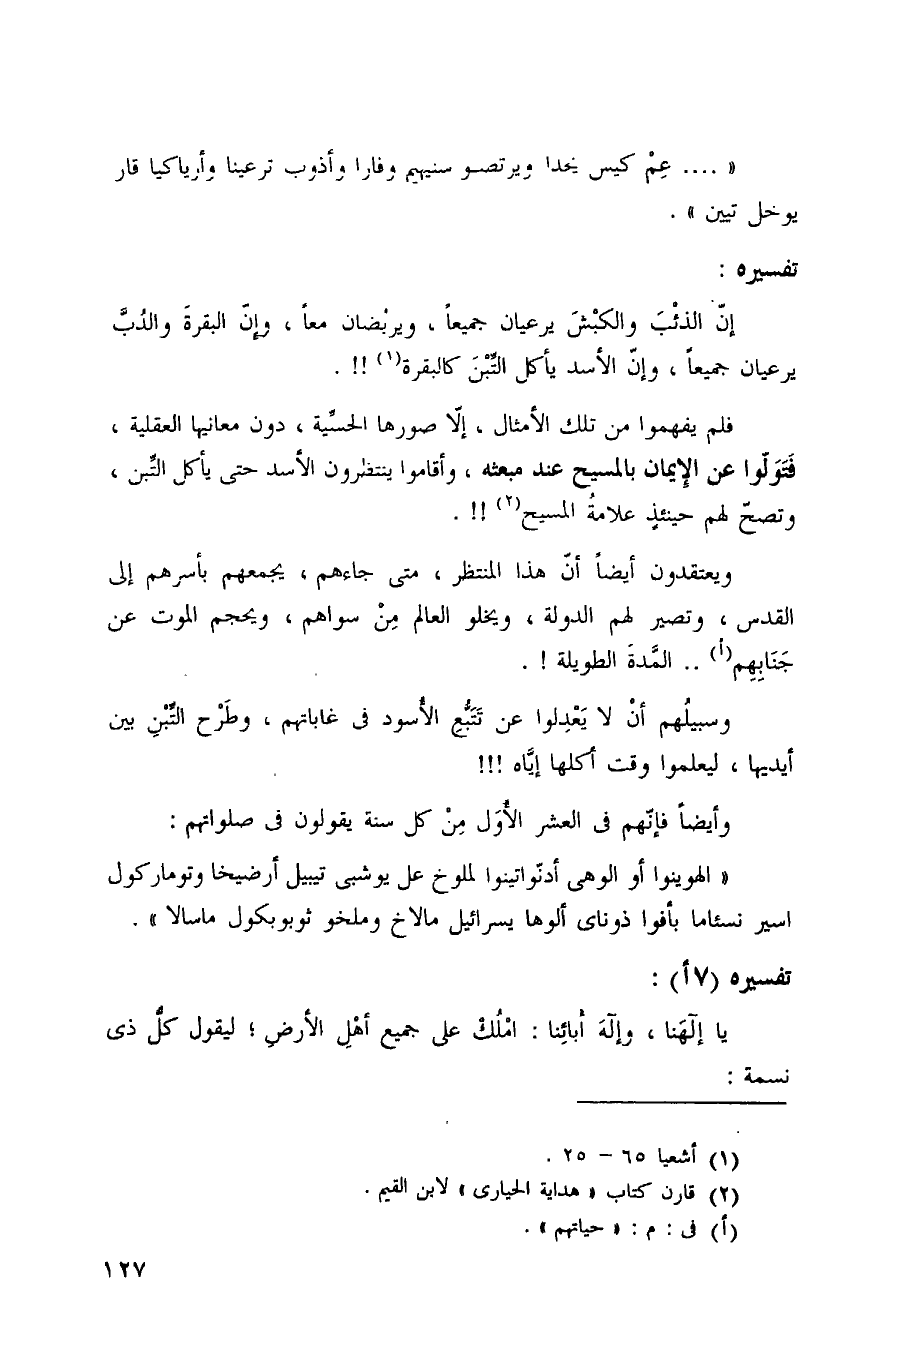 « .... عِمْ كيس يخدا ويرتصو سنيهم وفارا وأذوب ترعينا وأرياكيا قار
يوخل تيين » .
تفسيره :
إنّ الذئْبَ والكبْشَ يرعيان جميعاً ، ويربْضان معاً ، وإنّ البقرةَ والدُبَّ
يرعيان جميعاً ، وإنّ الأسد يأكل التِّبْنَ كالبقرة(١) !! .
فلم يفهموا من تلك الأمثال ، إلّا صورها الحسِّية ، دون معانيها العقلية ،
فَتَوَلّوا عن الإيمان بالمسيح عند مبعثه ، وأقاموا ينتظرون الأسد حتى يأكل التِّبن ،
وتصحّ لهم حينئذٍ علامةُ المسيح(٢) !! .
ويعتقدون أيضاً أنّ هذا المنتظر ، متى جاءهم ، يجمعهم بأسرهم إلى
القدس ، وتصير لهم الدولة ، ويخلو العالم مِنْ سواهم ، ويحجم الموت عن
جَنَابِهِم(أ) .. المَّدةَ الطويلة ! .
وسبيلُهم أنْ لا يَعْدِلوا عن تَتَبُّعِ الأُسود فى غاباتهم ، وطَرْح التِّبْنِ بين
أيديها ، ليعلموا وقت أكلها إيَّاه !!!
وأيضاً فإنّهم فى العشر الأُوَل مِنْ كل سنة يقولون فى صلواتهم :
« الهوينوا أو الوهى أدنّواتينوا لملوخ عل يوشبى تيبيل أرضيخا وتوماركول
اسير نسئاما بأفوا ذوناى ألوها يسرائيل مالاخ وملخو ثوبوبكول ماسالا » .
تفسيره (٧أ) :
يا إلَهَنا ، وإلَهَ أبائِنا : امْلُكْ على جميع أهْلِ الأرضِ ؛ ليقول كلُّ ذى
نسمة :
(١) أشعيا ٦٥ – ٢٥ .
(٢) قارن كتاب « هداية الحيارى » لابن القيم .
(أ) فى : م : « حياتهم » .
١٢٧